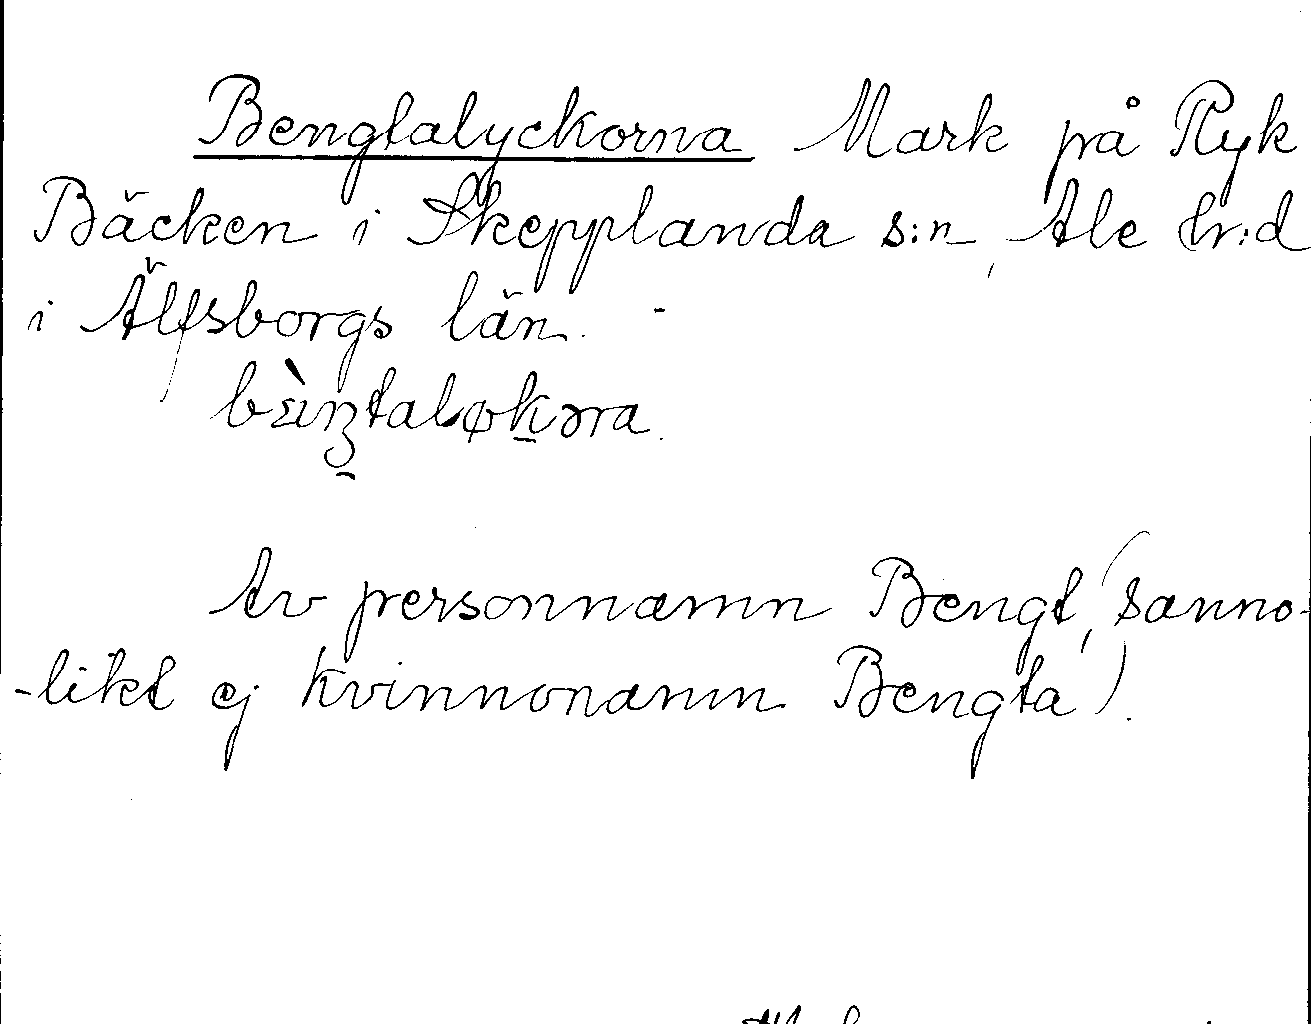 Bengtalyckorna Mark på Ryk
Bäcken i Skepplanda s:n, Ale hr:d
i Älfsborgs län. -
Av personnamn Bengt, (sanno-
-likt ej kvinnonamn Bengta).